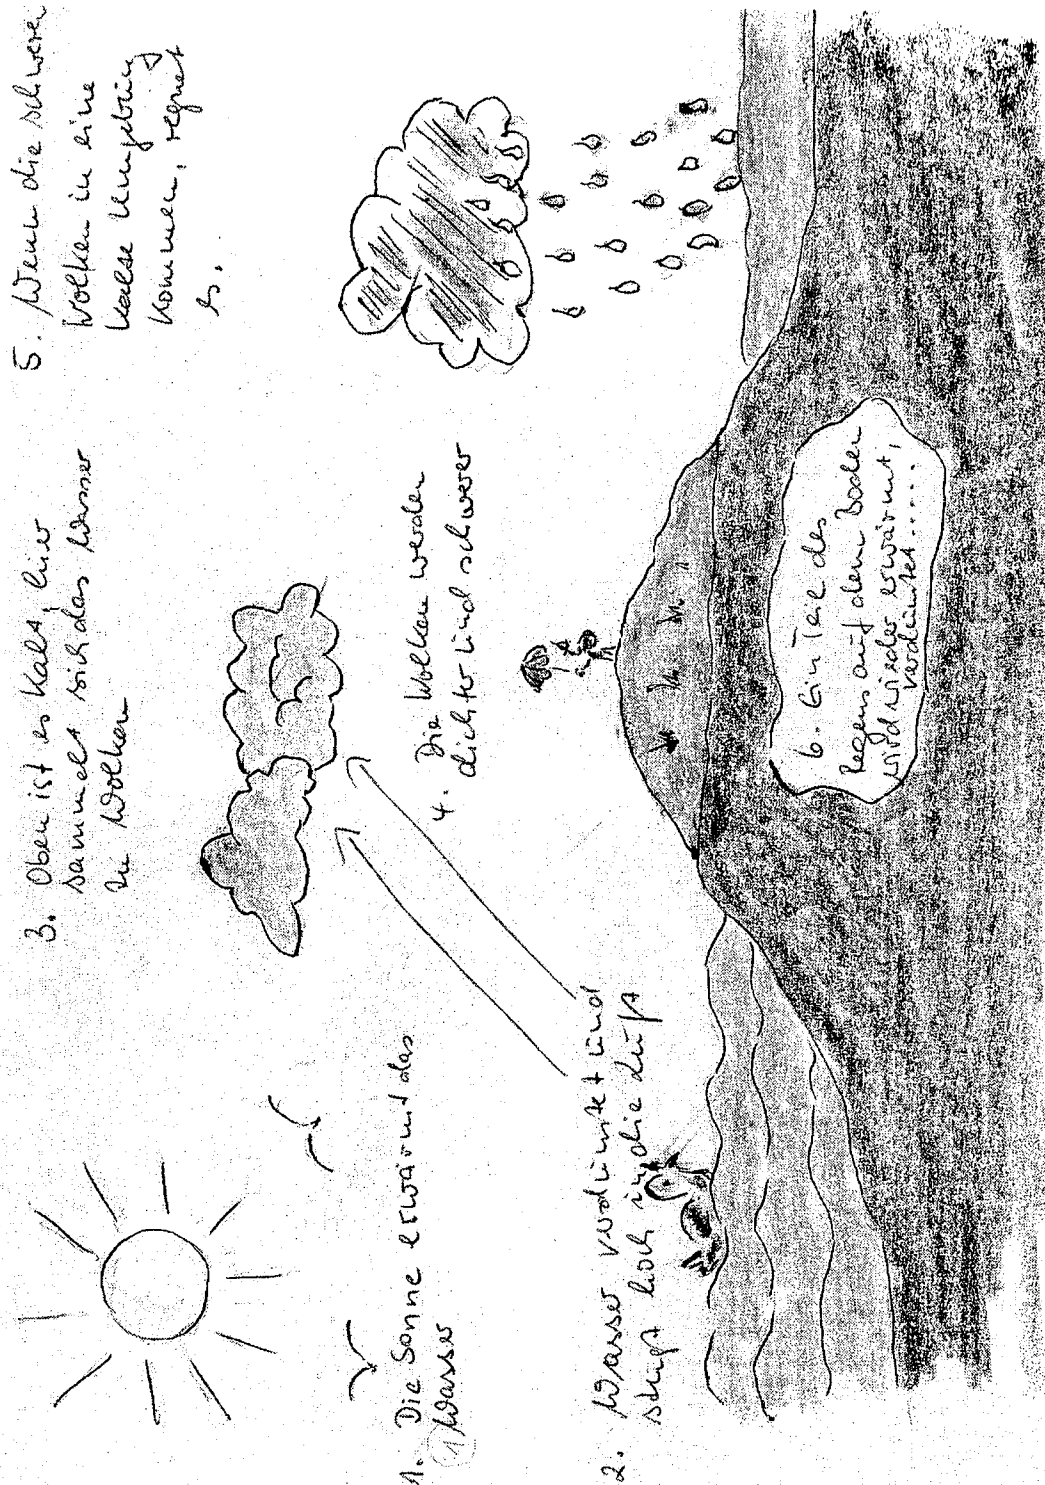 1. Die Sonne erwärmt das
Wasser
2. Wasser verdunstet und
steigt hoch in die Luft
3. Oben ist es kalt, hier
sammelt sich das Wasser
in Wolken
4. Die Wolken werden
dichter und schwerer
5. Wenn die schweren
Wolken in eine
kalte Umgebung
kommen, regnet
es.
6. Ein Teil des
Regens auf dem Boden
wird wieder erwärmt,
verdunstet.....